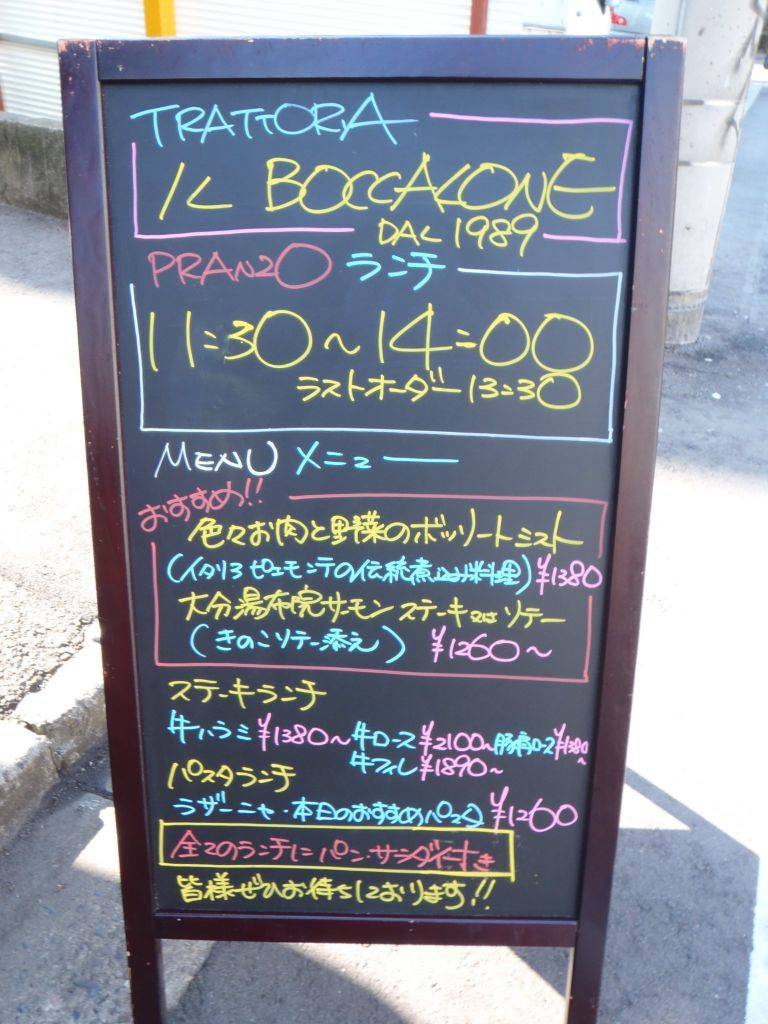 TRATTORIA
IL BOCCALONE
DAL 1989
PRANZO ランチ
11:30~14:00
ラストオーダー 13:30
MENU メニュー
おすすめ!!
色々お肉と野菜のボッリートミスト
(イタリア ピエモンテの伝統煮込み料理) ¥1380
大分湯布院サーモン ステーキ又はソテー
(きのこソテー添え) ¥1260~
ステーキランチ
牛ハラミ ¥1380~ 牛ロース ¥2100~ 豚肩ロース ¥1380~
牛フィレ ¥1890~
パスタランチ
ラザーニャ・本日のおすすめパスタ ¥1260
全てのランチにパン・サラダ付き
皆様ぜひお待ちしております!!